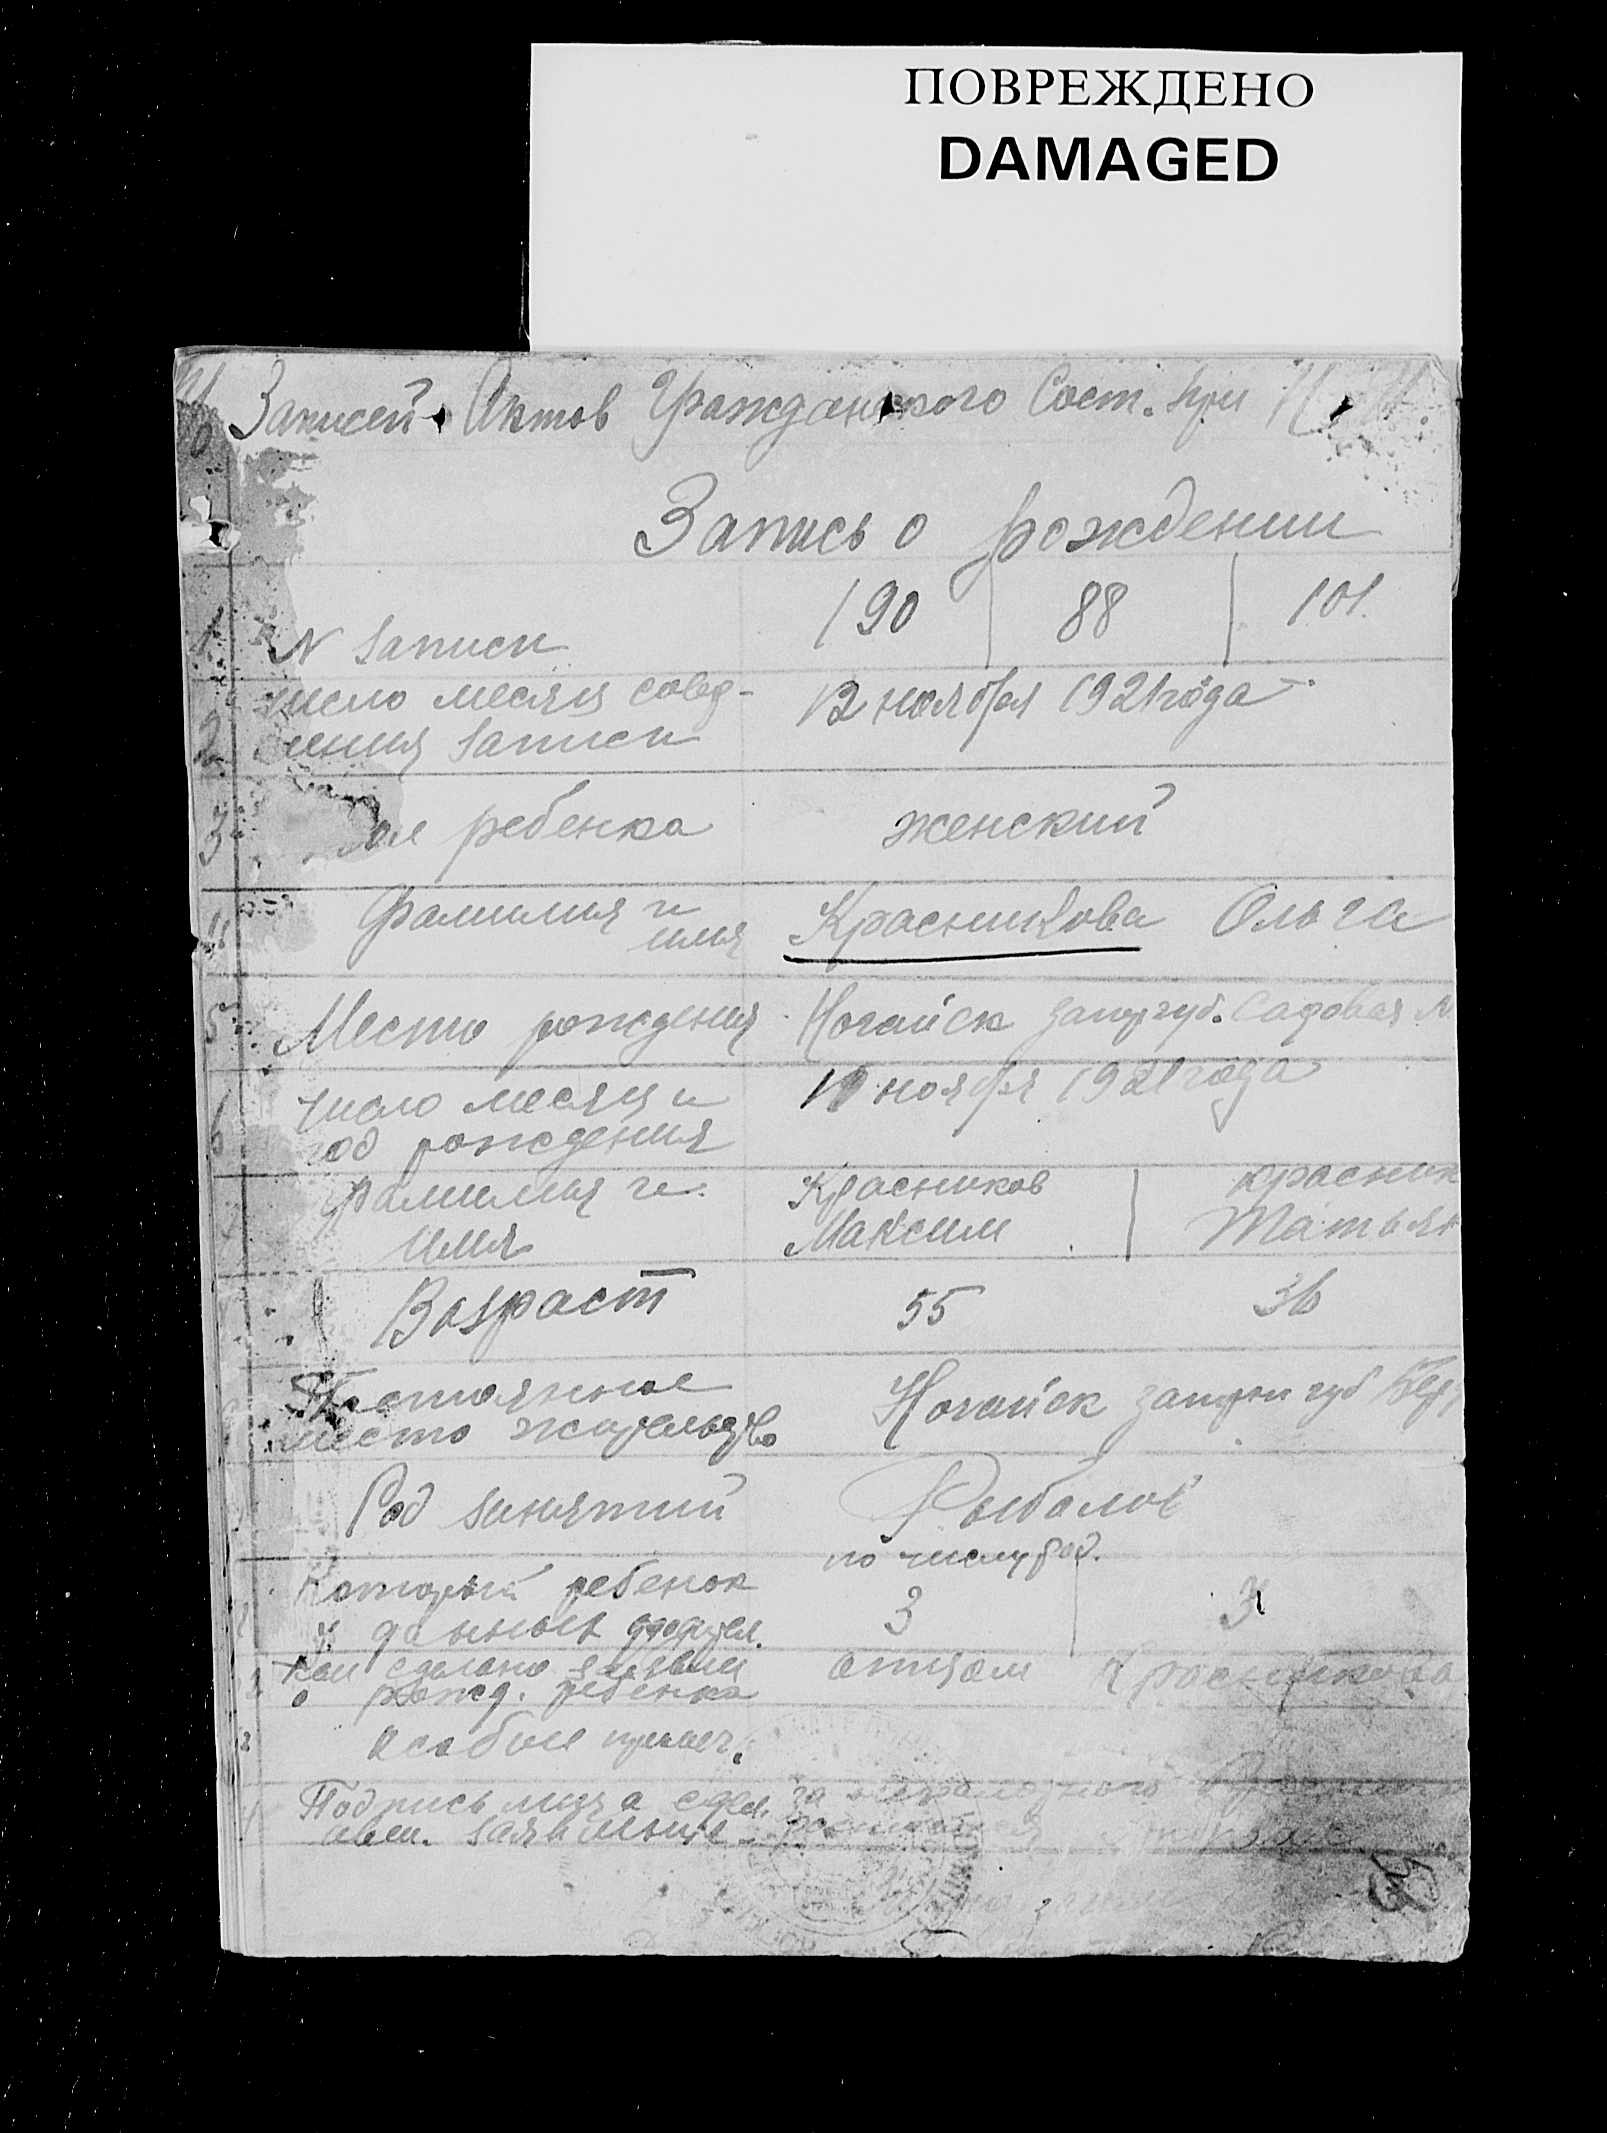 ПОВРЕЖДЕНО
DAMAGED
Записей Актов Гражданского Сост. при
Запись о рождении
1 N записи 190 88 101.
число месяц совер- 12 ноября 1921 года
2 шения записи
3 пол ребенка женский
4 Фамилия и
имя Красникова Ольга
5 Место рождения Ногайск запор губ. Садовая N
число месяц и ноября 1921 года
6 год рождения
Фамилия и Красников красник
имя Максим Татьян
Возраст 55 36
Постоянное Ногайск запор губ
место жительство
Род занятий Рыболов
по числу род.
Который ребенок
у данных родител. 3 3
Кем сделано заявлен отцом Красникова
о рожд. ребенка
особые примеч.
Подпись лица сдел. за неграмотного
авш. заявление